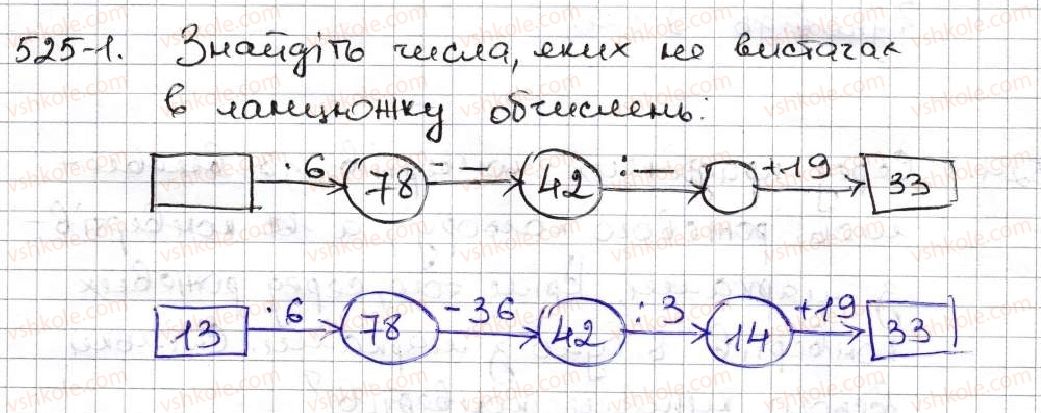 525-1. Знайдіть числа, яких не вистачає
в ланцюжку обчислень:
· 6 78 - — 42 : — +19 33
13 · 6 78 - 36 42 : 3 14 +19 33
vshkole.com